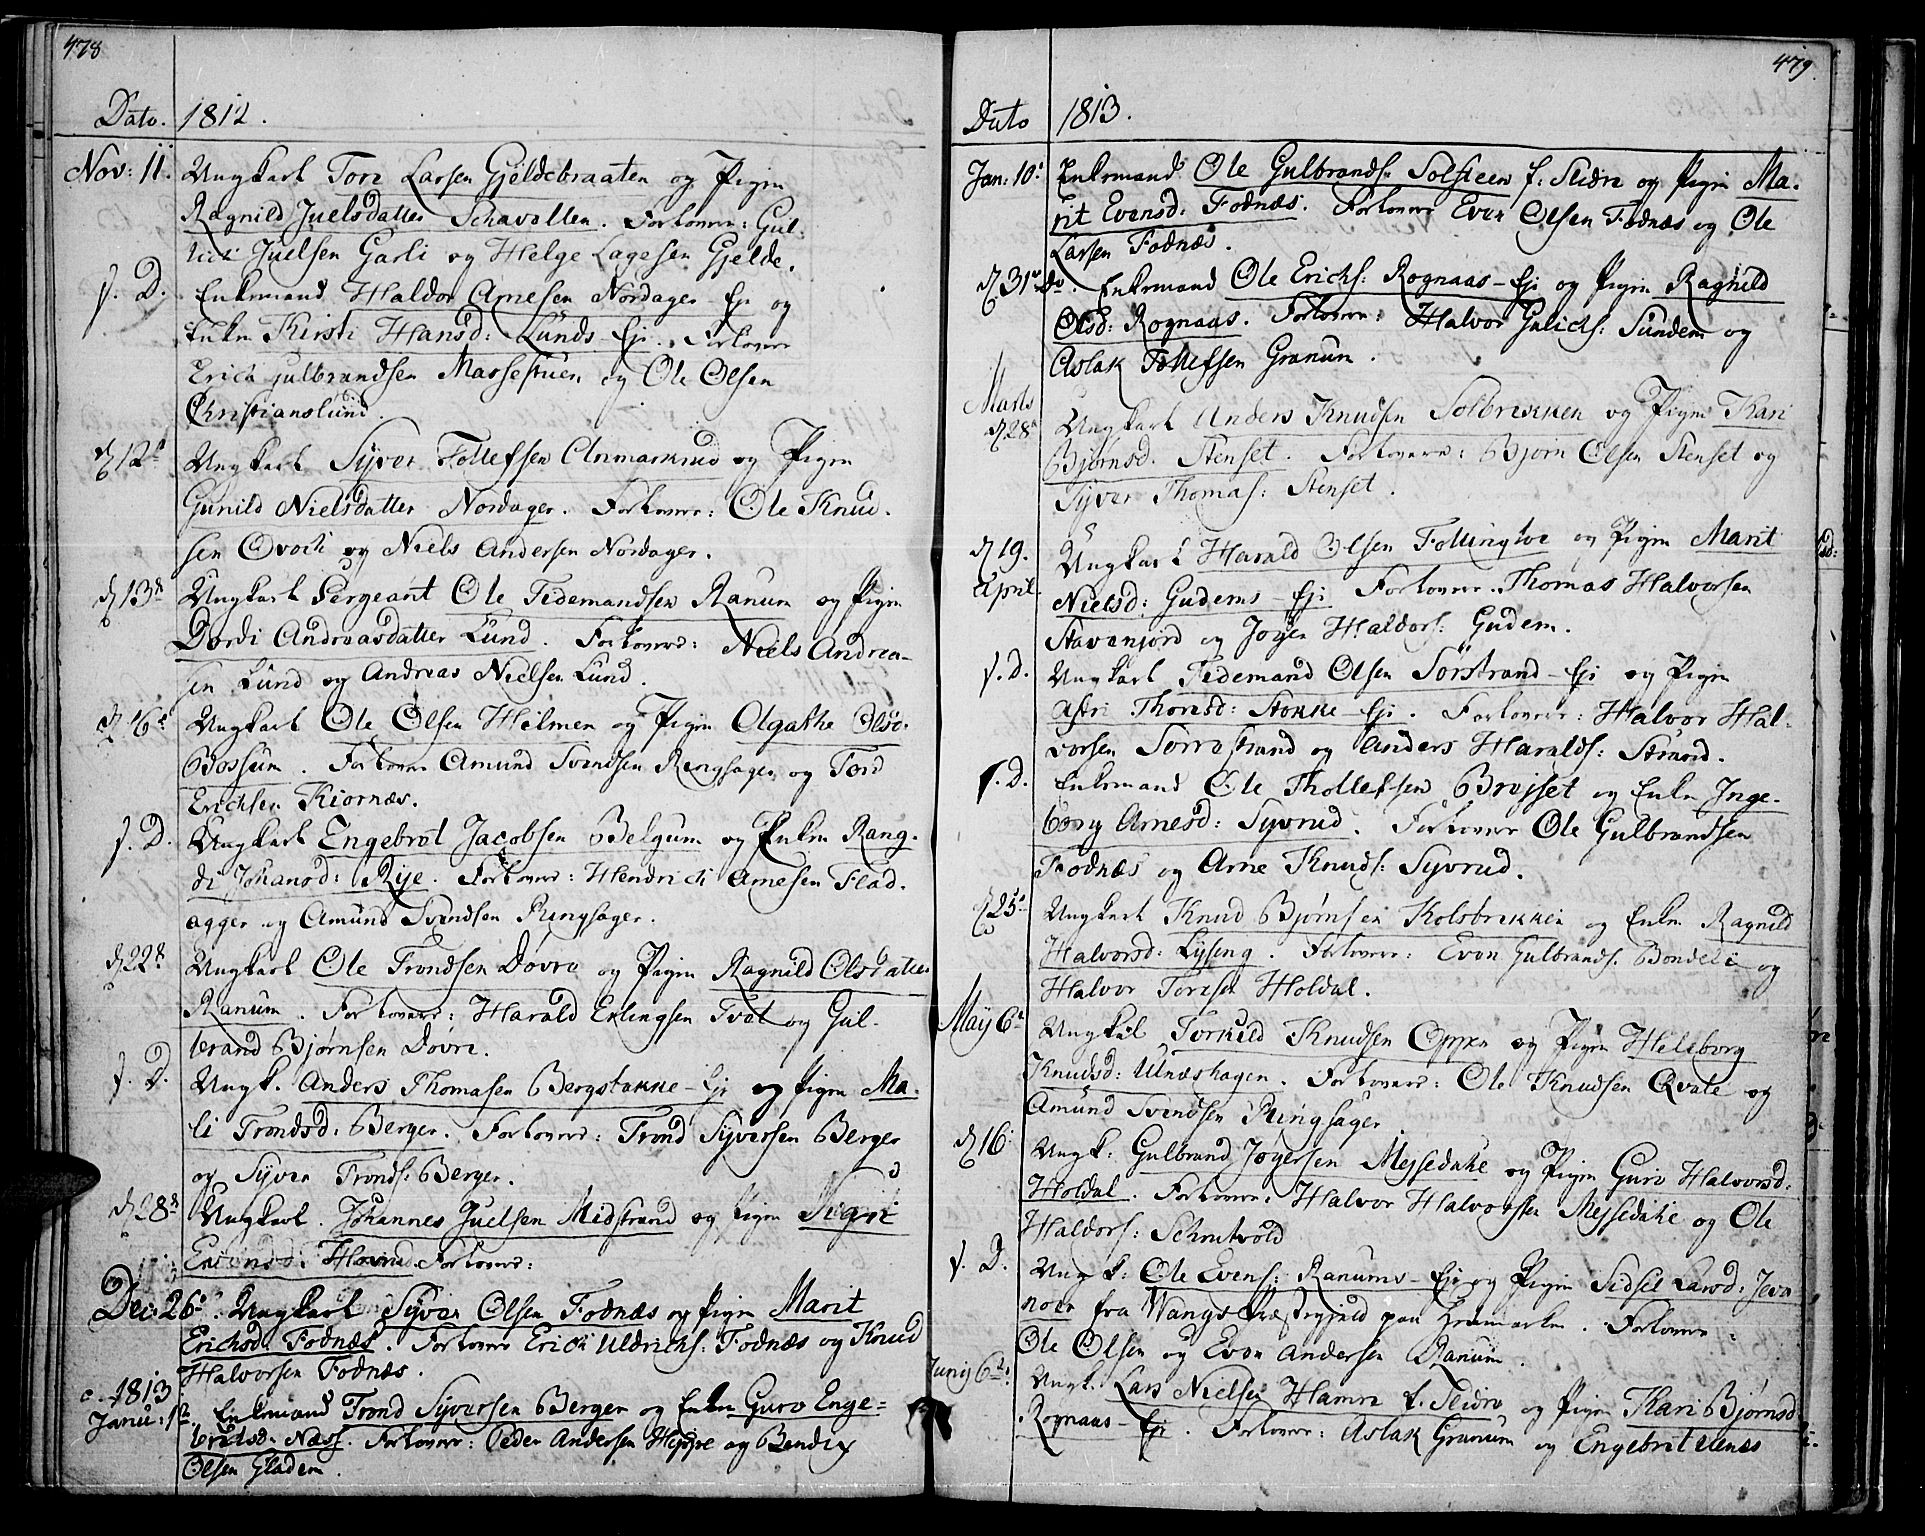 478
Dato. 1812.
Nov: 11. Ungkarl Tore Larsen Gjeldebraaten og Pigen
Ragnild Juelsdatter Schavollen. Forlovere: Gul-
lick Juelsen Garli og Helge Lagesen Gjelde.
s. D. Enkemand Haldor Arnesen Nordager-Eje og
Enken Kirsti Hansd: Lunds Eje. Forlovere
Erick gulbrandsen Massestuen og Ole Olsen
Christianslund.
d 12te Ungkarl Syver Tollefsen Anmarkrud og Pigen
Gunild Nielsdatter Nordager. Forlovere: Ole Knud-
sen Qvoli og Niels Andersen Nordager.
d 13de Ungkarl Sergeant Ole Tidemandsen Ranum og Pigen
Dordi Andreasdatter Lund. Forlovere: Niels Andrea-
sen Lund og Andreas Nielsen Lund.
d 16de Ungkarl Ole Olsen Heilmen og Pigen Olgathe Olsd:
Bossum. Forlovere Amund Svendsen Ringsager og Tord
Erichsen Kiornæs.
s. D. Ungkarl Engebret Jacobsen Belgum og Enken Rang-
di Johansd: Rije. Forlovere: Hendrich Arnesen Flad-
agger og Amund Svendsen Ringsager.
d 22de Ungkarl Ole Trondsen Dövre og Pigen Ragnild Olsdatter
Ranum. Forlovere: Harald Erlingsen Tvet og Gul-
brand Bjørnsen Dövre.
s. D. Ungk. Anders Thomasen Bergstakke-Eje og Pigen Ma-
li Trondsd: Berger. Forlovere: Trond Syversen Berger
og Syver Tronds: Berger.
d 28de Ungkarl Johannes Juelsen Midstrand og Pigen Sigri
Forlovere:
Dec: 26de Ungkarl Syver Olsen Fodnæs og Pigen Marit
Erichsd Fodnæs. Forlovere Erich Uldrichs: Fodnæs og Knud
Halvorsen Fodnæs.
1813
Janu: 1te Enkemand Trond Syversen Berger og Enken Guro Enge-
bretsd: Næss. Forlovere: Peder Andersen Hippe og Bendix
Olsen Gladem.
479.
Dato 1813.
Jan: 10de Enkemand Ole Gulbrands: Solsteen f. Slidre og Pigen Ma-
rit Evensd: Fodnæs. Forlovere Even Olsen Fodnæs og Ole
Larsen Fodnæs.
d 31te do. Enkemand Ole Erichs: Rognaas-Eje og Pigen Ragnild
Olsd: Rognaas. Forlovere: Halvor Gulichs: Sundem og
Aslak Tollefsen Granum.
Marts
d 28de Ungkarl Anders Knudsen Solbrekken og Pigen Kari
Bjørnsd. Stenset. Forlovere: Bjørn Olsen Stenset og
Syver Thomas: Stenset.
d 19.
April. Ungkarl Harald Olsen Follingloe og Pigen Marit
Nielsd: Gudems-Eje Forlovere. Thomas Halvorsen
Stavenjord og Joger Haldors: Gudem.
s. D. Ungkarl Tidemand Olsen Sörstrand-Eje og Pigen
Astri Thoresd: Stokke Eje. Forlovere: Halvor Hal-
vorsen Sörrestrand og Anders Haralds: Strand.
s. D. Enkemand Ole Thollefsen Brøjset og Enken Inge-
borg Arnesd: Syvrud. Forlovere Ole Gulbrandsen
Fodnæs og Arne Knuds: Syvrud.
d 25de Ungkarl Knud Bjørnsen Kolsbrekken og Enken Ragnild
Halvorsd: Lysing. Forlovere: Even Gulbrands. Bondeli og
Halvor Toresen Holdal.
Maij 6te Ungkarl Torkild Knudsen Oppen og Pigen Helleborg
Knudsd: Ulnæshagen. Forlovere: Ole Knudsen Qvale og
Amund Svendsen Ringsager
d 16. Ungk: Gulbrand Jogersen Mejsedahl og Pigen Guro Halvorsd:
Holdal. Forlovere: Halvor Halvorsen Mejsedahl og Ole
Haldors: Schrutvold
s. D. Ungk: Ole Evens: Ranums-Eje og Pigen Sidsel Larsd: Jeva-
noer fra Wangs Præstegjeld paa Hedemarken. Forlovere:
Ole Olsen og Even Andersen Ranum.
Junij 6te Ungk. Lars Nielsen Hamre f. Slidre og Pigen Kari Bjørnsd
Rognaas-Eje. Forlovere: Aslak Granum og Engebret Ulnæs